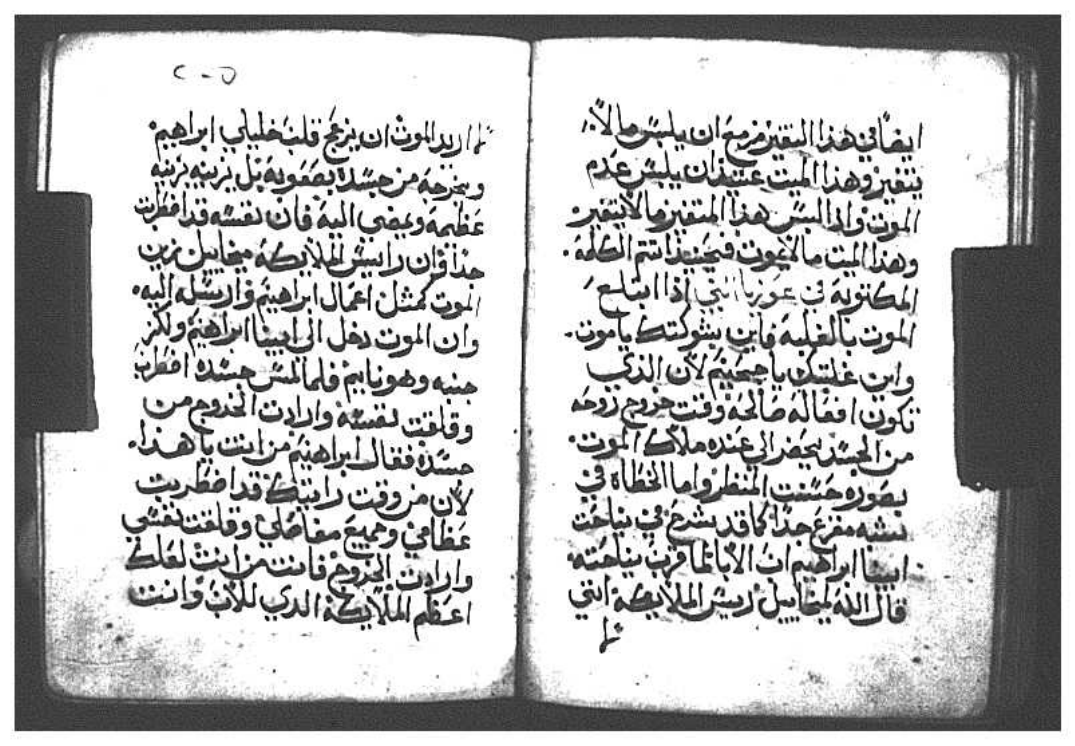 ايضا في هذا المتغير مزمع ان يلبس مالا
يتغير وهذا الميت عتيد ان يلبس عدم
الموت واذا لبس هذا المتغير ما لا يتغير
وهذا الميت ما لا يموت فحينيذ تتم الكلمه
المكتوبة في اذا ابتلع
الموت بالغلبه فاين شوكتك يا موت
واين غلبتك يا جحيم لان الذي
تكون افعاله صالحه وقت خروج روحه
من الجسد يحضر الى عنده ملاك الموت
بصوره حسنت المنظر واما الخطاة في
شبه مفزع جدا كما قد يشرع في نياحت
ابينا ابراهيم ان الاب لما قرب نياحته
قال الله لميخاييل رييس الملايكة انني
لم
لم اريد الموت ان يزعج قلب خليلي ابراهيم
ويخرجه من جسده بصعوبة بل يزينه بزينه
عظيمه ويمضي اليه فان نفسه قد اضطربت
جدا وان راييس الملايكة ميخاييل زين
الموت كمثل اعمال ابراهيم وارسله اليه
وان الموت دخل الى ابينا ابراهيم ولكز
جنبه وهو نايم فلما لمس جسده اضطرب
وقلقت نفسه وارادت الخروج من
جسده فقال ابراهيم من انت يا هذا
لان من وقت رايتك قد اضطربت
عظامي وجميع مفاصلي وقلقت نفسي
وارادت الخروج فانت من انت لعلك
اعظم الملايكة الذي للاب وانت